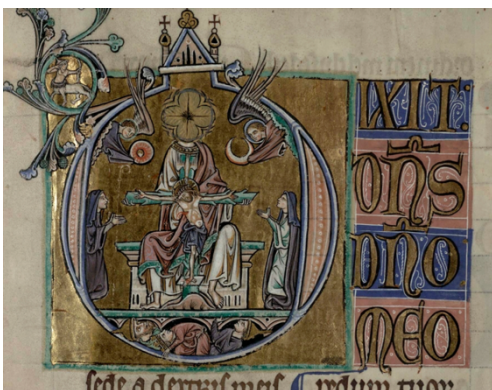 DIXIT:
DN̄S
DN̄O
MEO
sede a dextris meis